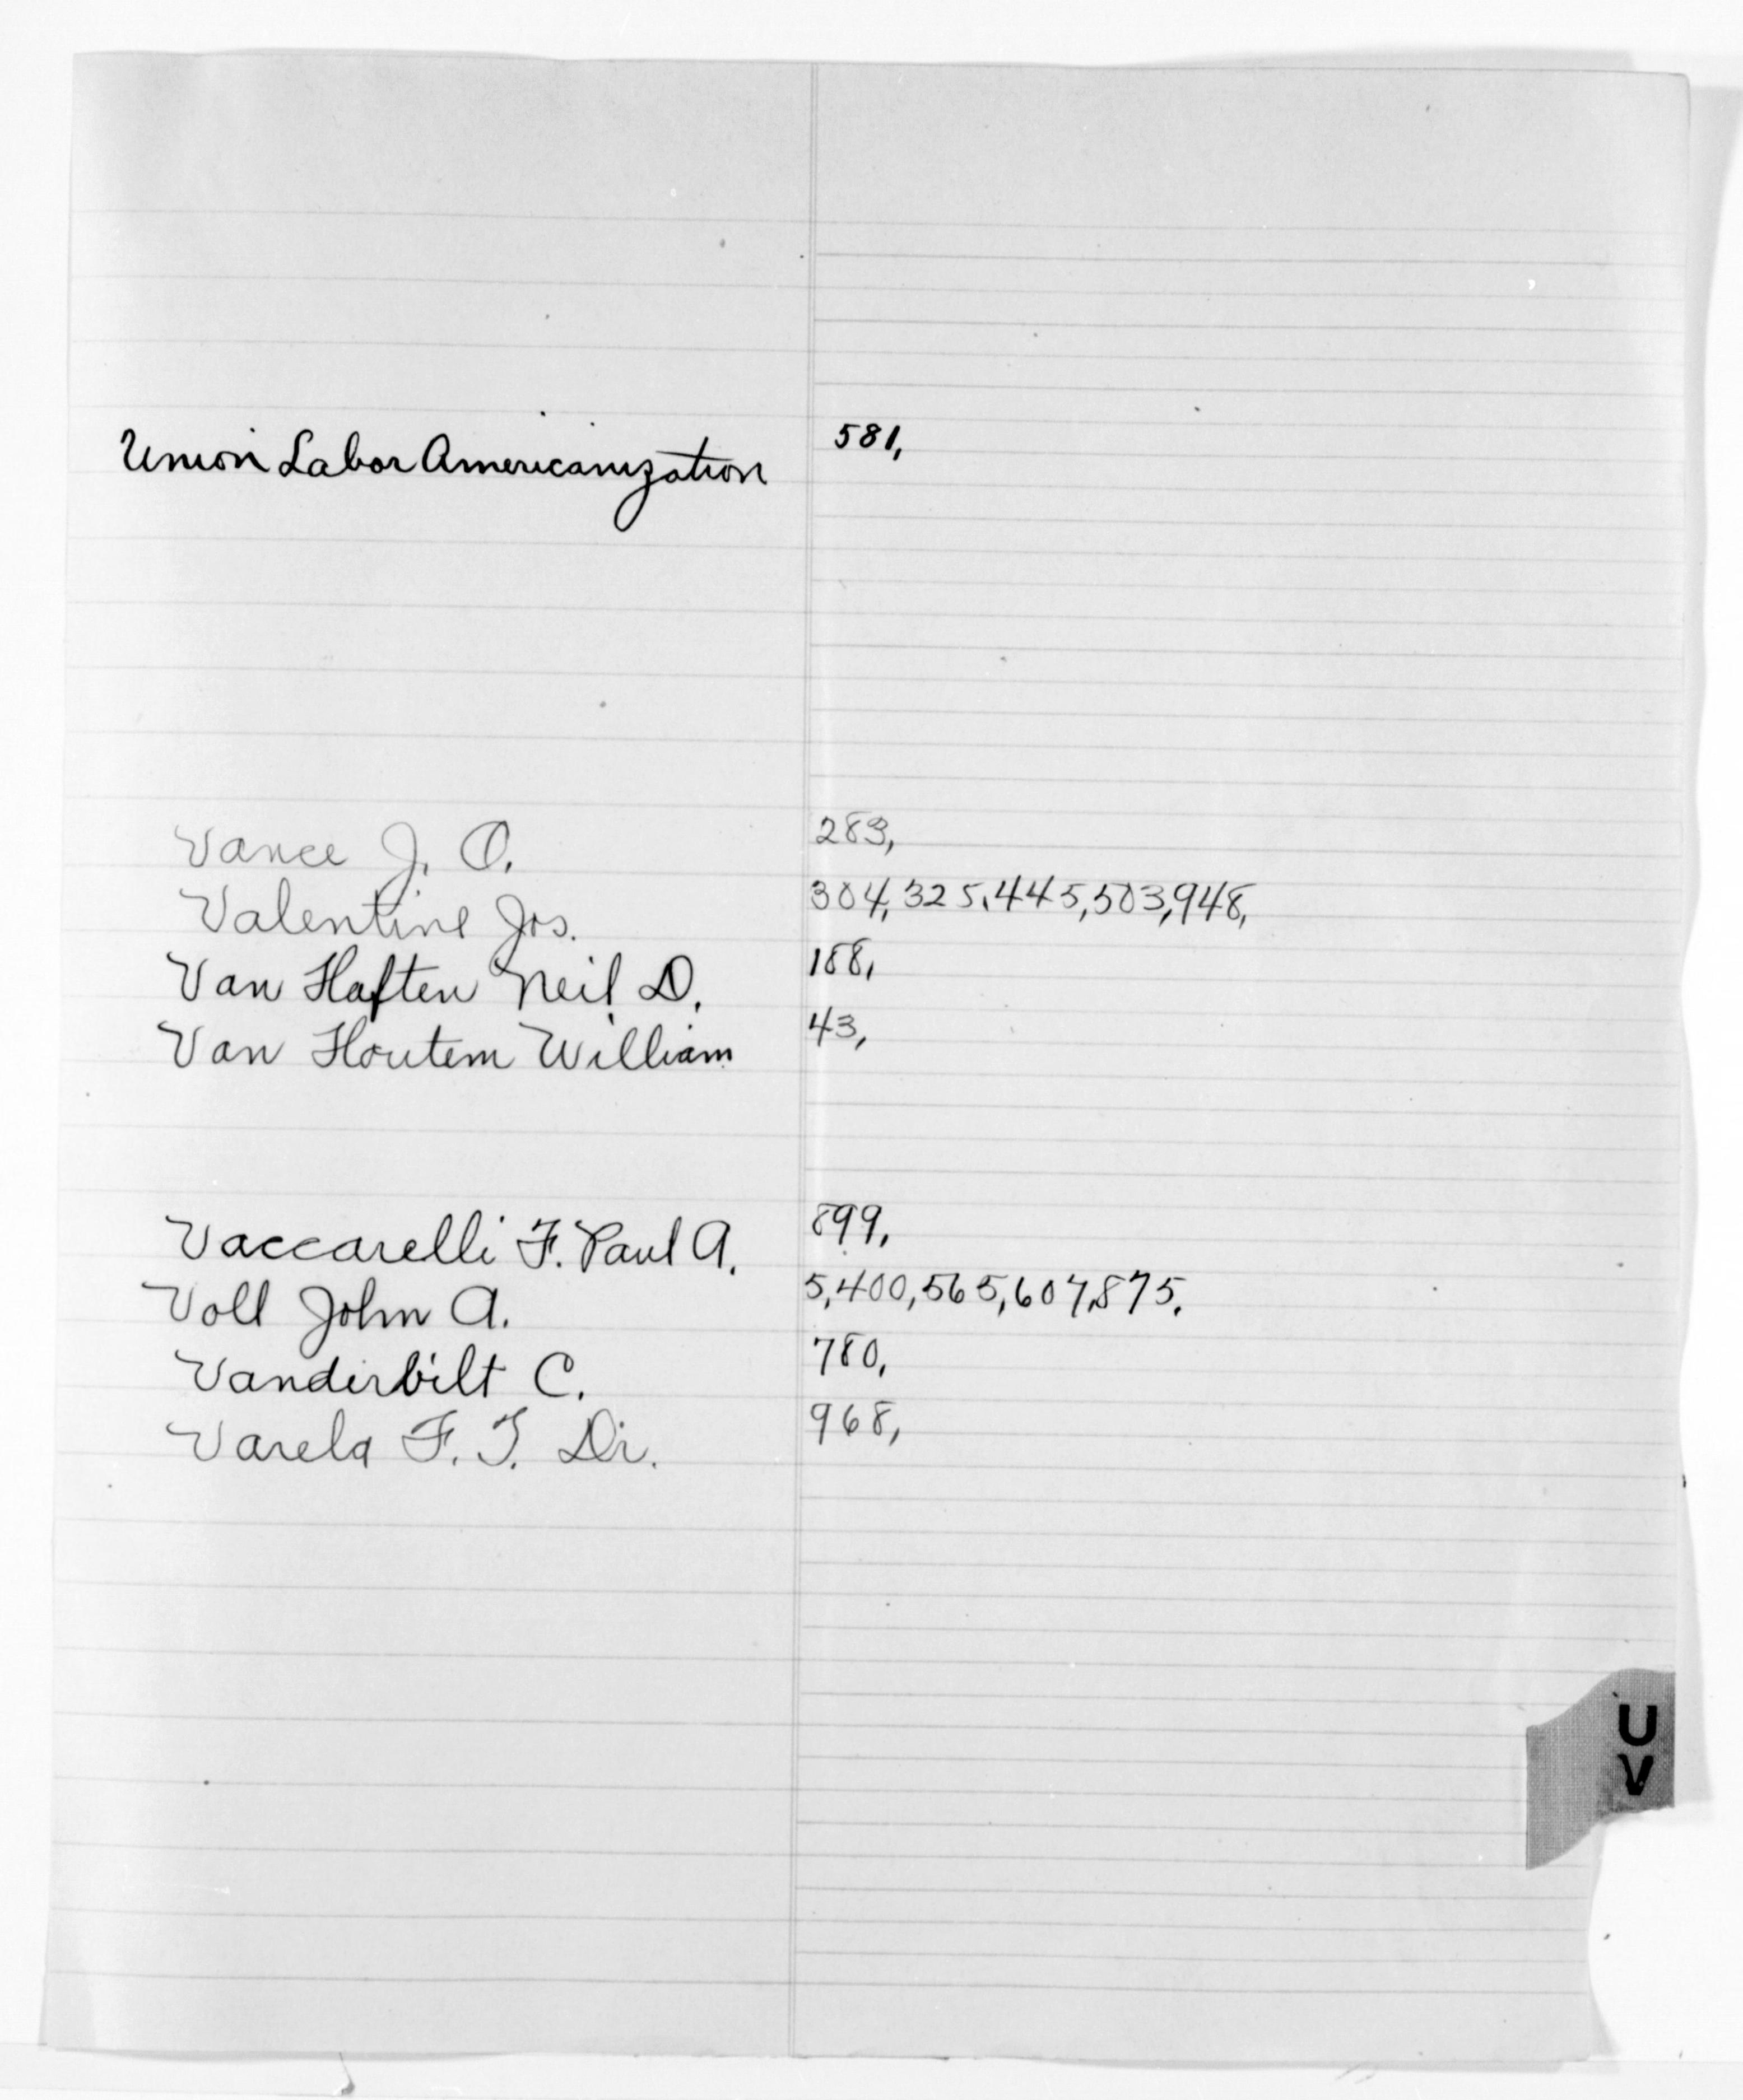 Union Labor Americanization 581,
Vance J. O. 283,
Valentine Jos. 304, 325, 445, 503, 948,
Van Haften Neil D. 188,
Van Houtem William 43,
Vaccarelli F. Paul A. 899,
Voll John A. 5, 400, 565, 607, 875.
Vanderbilt C. 780,
Varela F. T. Dr. 968,
U
V